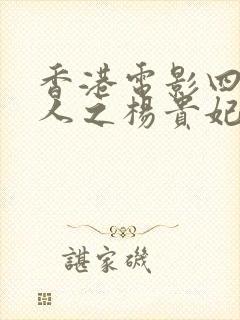 香港電影四
人之楊貴妃
諶家磯